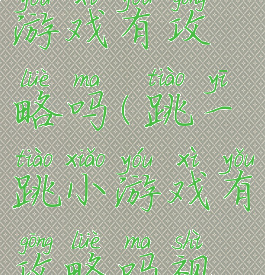 yóu xì yǒu gōng
游戏有攻
lüè ma tiào yī
略吗(跳一
tiào xiǎo yóu xì yǒu
跳小游戏有
gōng lüè ma shì
攻略吗视